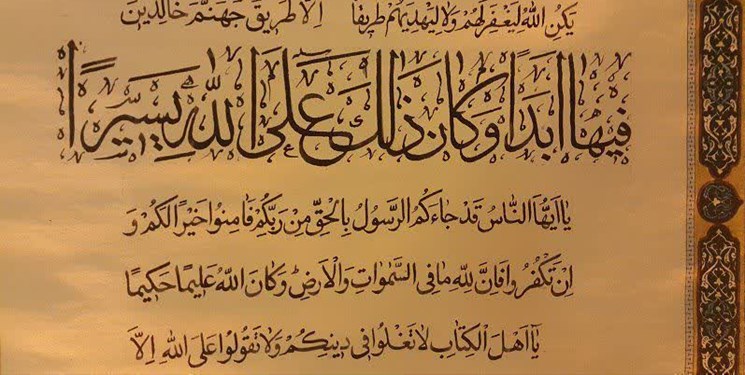 يَكُنِ اللهُ لِيَغْفِرَ لَهُمْ وَلَا لِيَهْدِيَهُمْ طَرِيقًا إِلَّا طَرِيقَ جَهَنَّمَ خَالِدِينَ
فِيهَا اَبَدًا وَكَانَ ذٰلِكَ عَلَى اللهِ يَسِيرًا
يَا اَيُّهَا النَّاسُ قَدْ جَاءَكُمُ الرَّسُولُ بِالْحَقِّ مِنْ رَبِّكُمْ فَاٰمِنُوا خَيْرًا لَكُمْ وَ
اِنْ تَكْفُرُوا فَاِنَّ لِلّٰهِ مَا فِى السَّمٰوَاتِ وَالْاَرْضِ وَكَانَ اللهُ عَلِيمًا حَكِيمًا
يَا اَهْلَ الْكِتَابِ لَا تَغْلُوا فِى دِينِكُمْ وَلَا تَقُولُوا عَلَى اللهِ اِلَّا